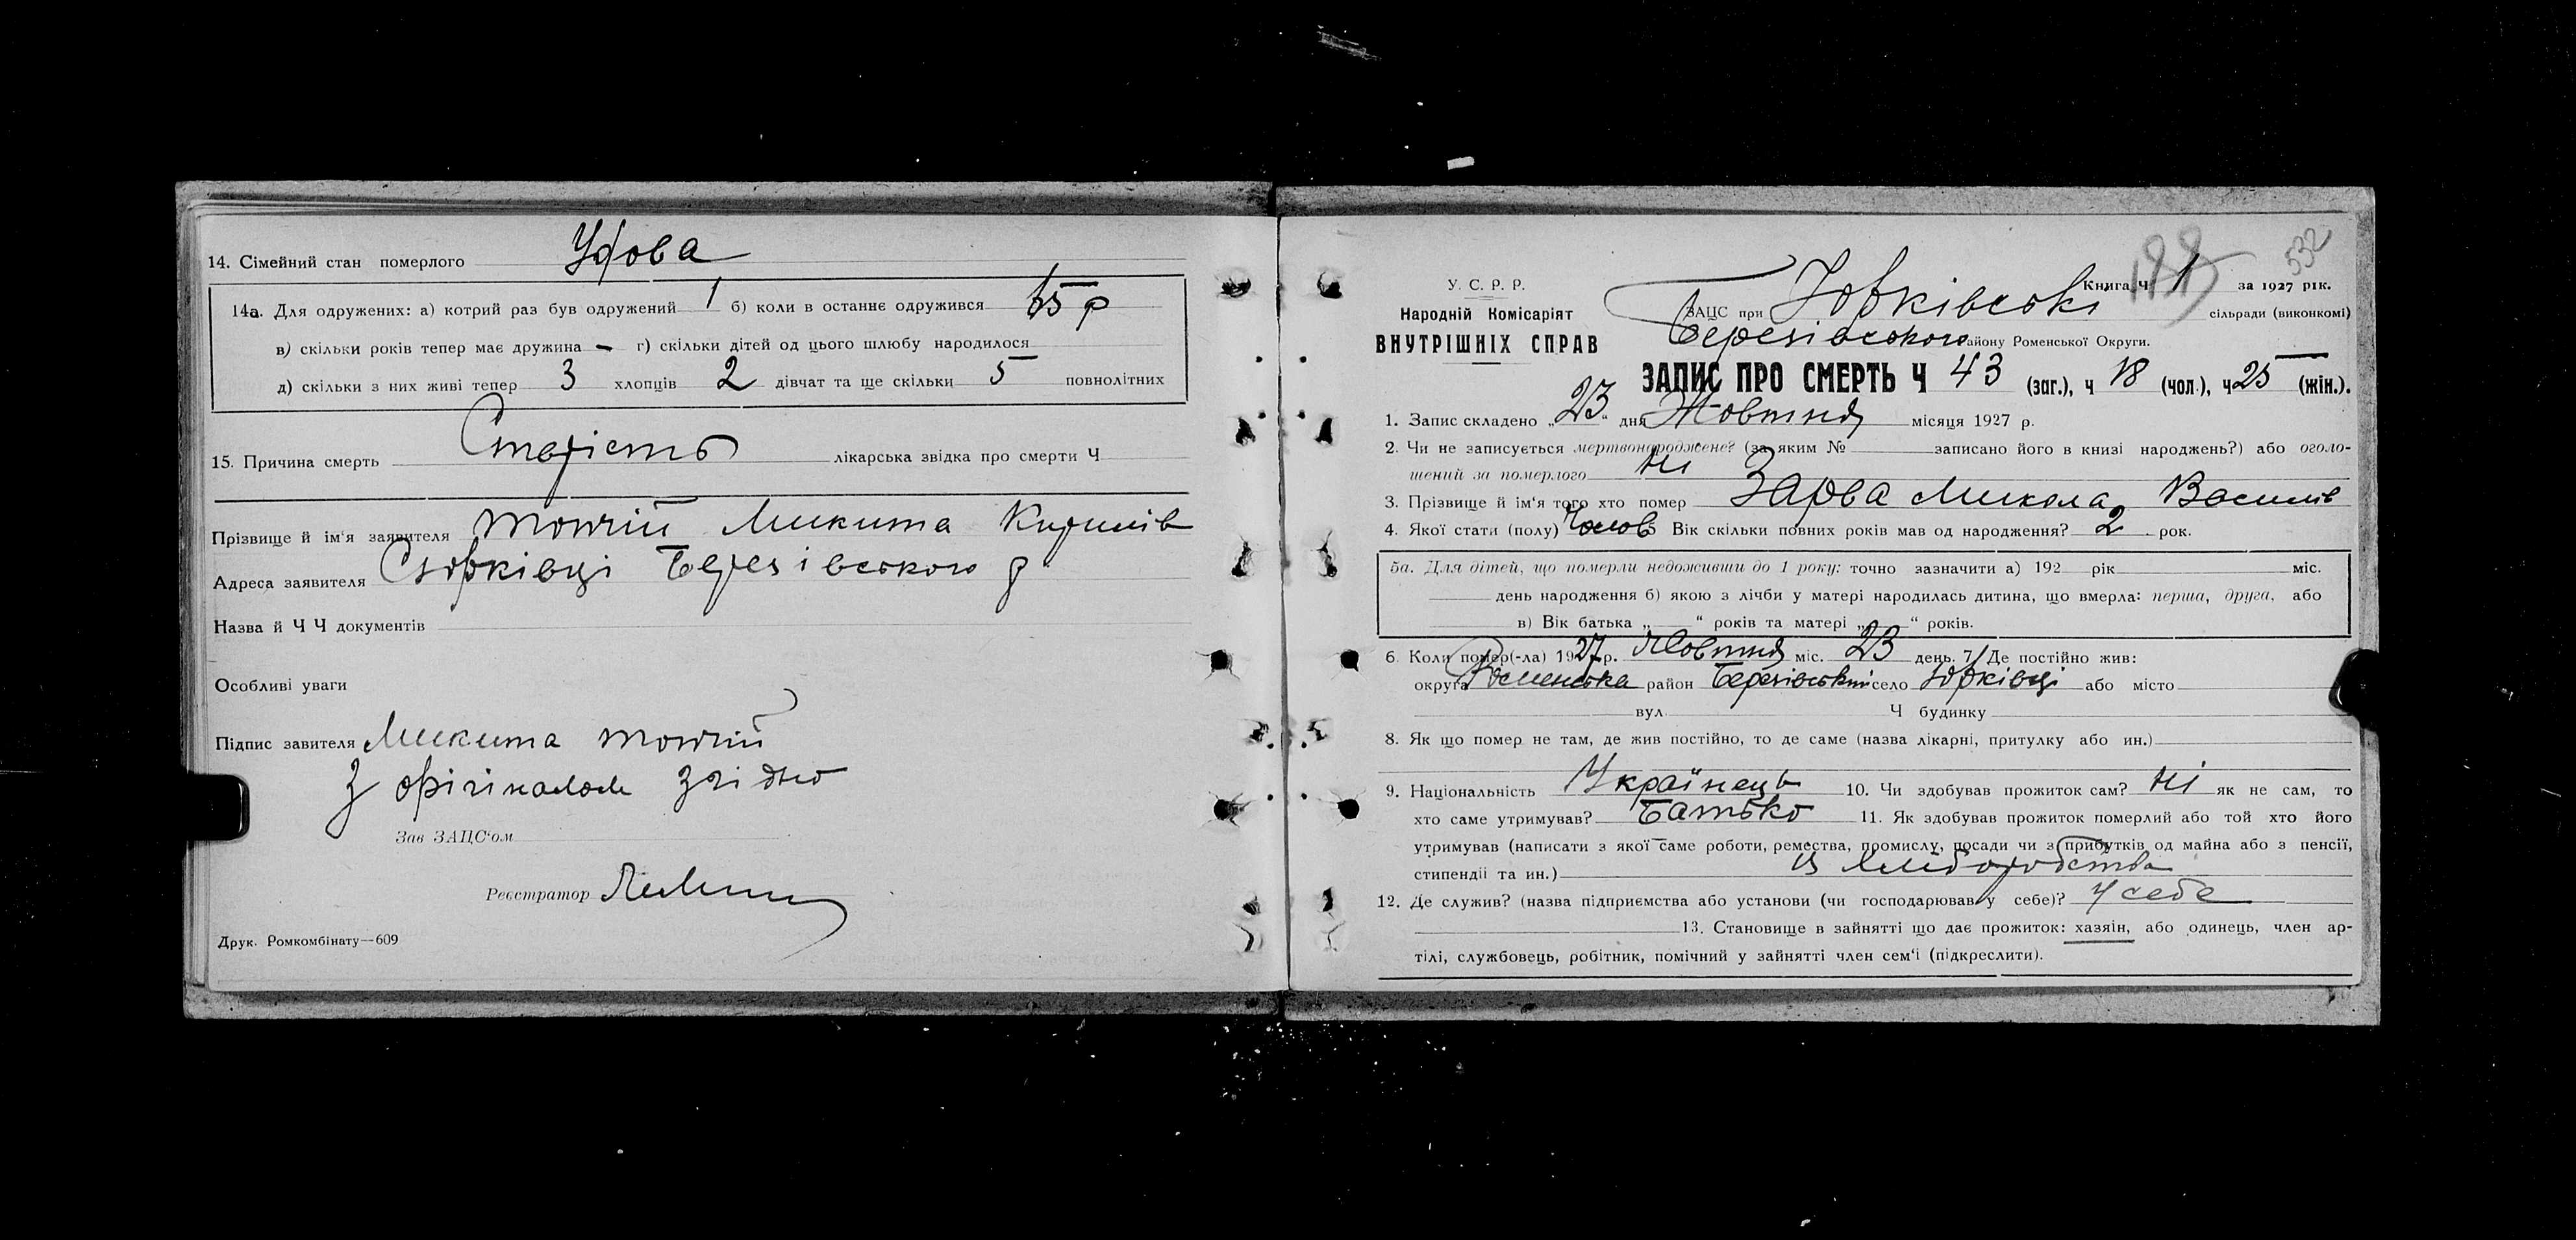 14. Сімейний стан померлого Удова
14а. Для одружених: а) котрий раз був одружений 1 б) коли в останнє одружився 65 р
в) скільки років тепер має дружина — г) скільки дітей од цього шлюбу народилося
д) скільки з них живі тепер 3 хлопців 2 дівчат та ще скільки 5 повнолітних
15. Причина смерть Старість лікарська звідка про смерти Ч
Прізвище й ім'я заявителя Микита Кирилів
Адреса заявителя Березівського р
Назва й Ч Ч документів
Особливі уваги
Підпис завителя Микита
З орігіналом згідно
Зав ЗАЦС'ом
Реєстратор
Друк. Ромкомбінату—609
532
У. С. Р. Р.
Народній Комісаріят
ВНУТРІШНІХ СПРАВ
Книга Ч 1 за 1927 рік.
ЗАЦС при Юрківські сільради (виконкомі)
Березівського району Роменської Округи.
ЗАПИС ПРО СМЕРТЬ Ч 43 (заг.), ч 18 (чол.), ч 25 (жін.).
1. Запис складено „23" дня Жовтня місяця 1927 р.
2. Чи не записується мертвонароджене? (за яким № записано його в книзі народжень?) або оголо-
шений за померлого Ні
3. Прізвище й ім'я того хто помер Зарва Микола Василів
4. Якої стати (полу) Чолов Вік скільки повних років мав од народження? 2 рок.
5а. Для дітей, що померли недоживши до 1 року: точно зазначити а) 192 рік міс.
день народження б) якою з лічби у матері народилась дитина, що вмерла: перша, друга, або
в) Вік батька „ " років та матері „ " років.
6. Коли помер(-ла) 1927 р. Жовтня міс. 23 день. 7. Де постійно жив:
округа Роменська район Березівський село Юрківці або місто
вул. Ч будинку
8. Як що помер не там, де жив постійно, то де саме (назва лікарні, притулку або ин.)
9. Національність Українець 10. Чи здобував прожиток сам? Ні як не сам, то
хто саме утримував? Батько 11. Як здобував прожиток померлий або той хто його
утримував (написати з якої саме роботи, ремества, промислу, посади чи з прибутків од майна або з пенсії,
стипендії та ин.) із хліборобства
12. Де служив? (назва підприємства або установи (чи господарював у себе)? У себе
13. Становище в зайнятті що дає прожиток: хазяін, або одинець, член ар-
тілі, службовець, робітник, помічний у зайнятті член сем'і (підкреслити).